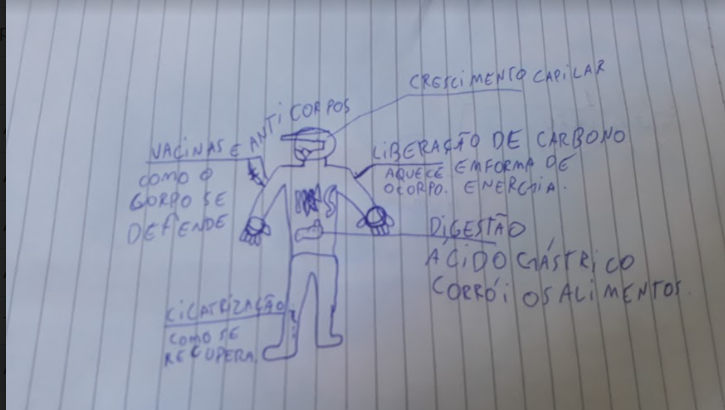 CRESCIMENTO CAPILAR
VACINAS E ANTICORPOS
COMO O
CORPO SE
DEFENDE
LIBERAÇÃO DE CARBONO
AQUECE EM FORMA DE
O CORPO. ENERGIA.
DIGESTÃO
ÁCIDO GÁSTRICO
CORRÓI OS ALIMENTOS.
CICATRIZAÇÃO
COMO SE
RECUPERA.